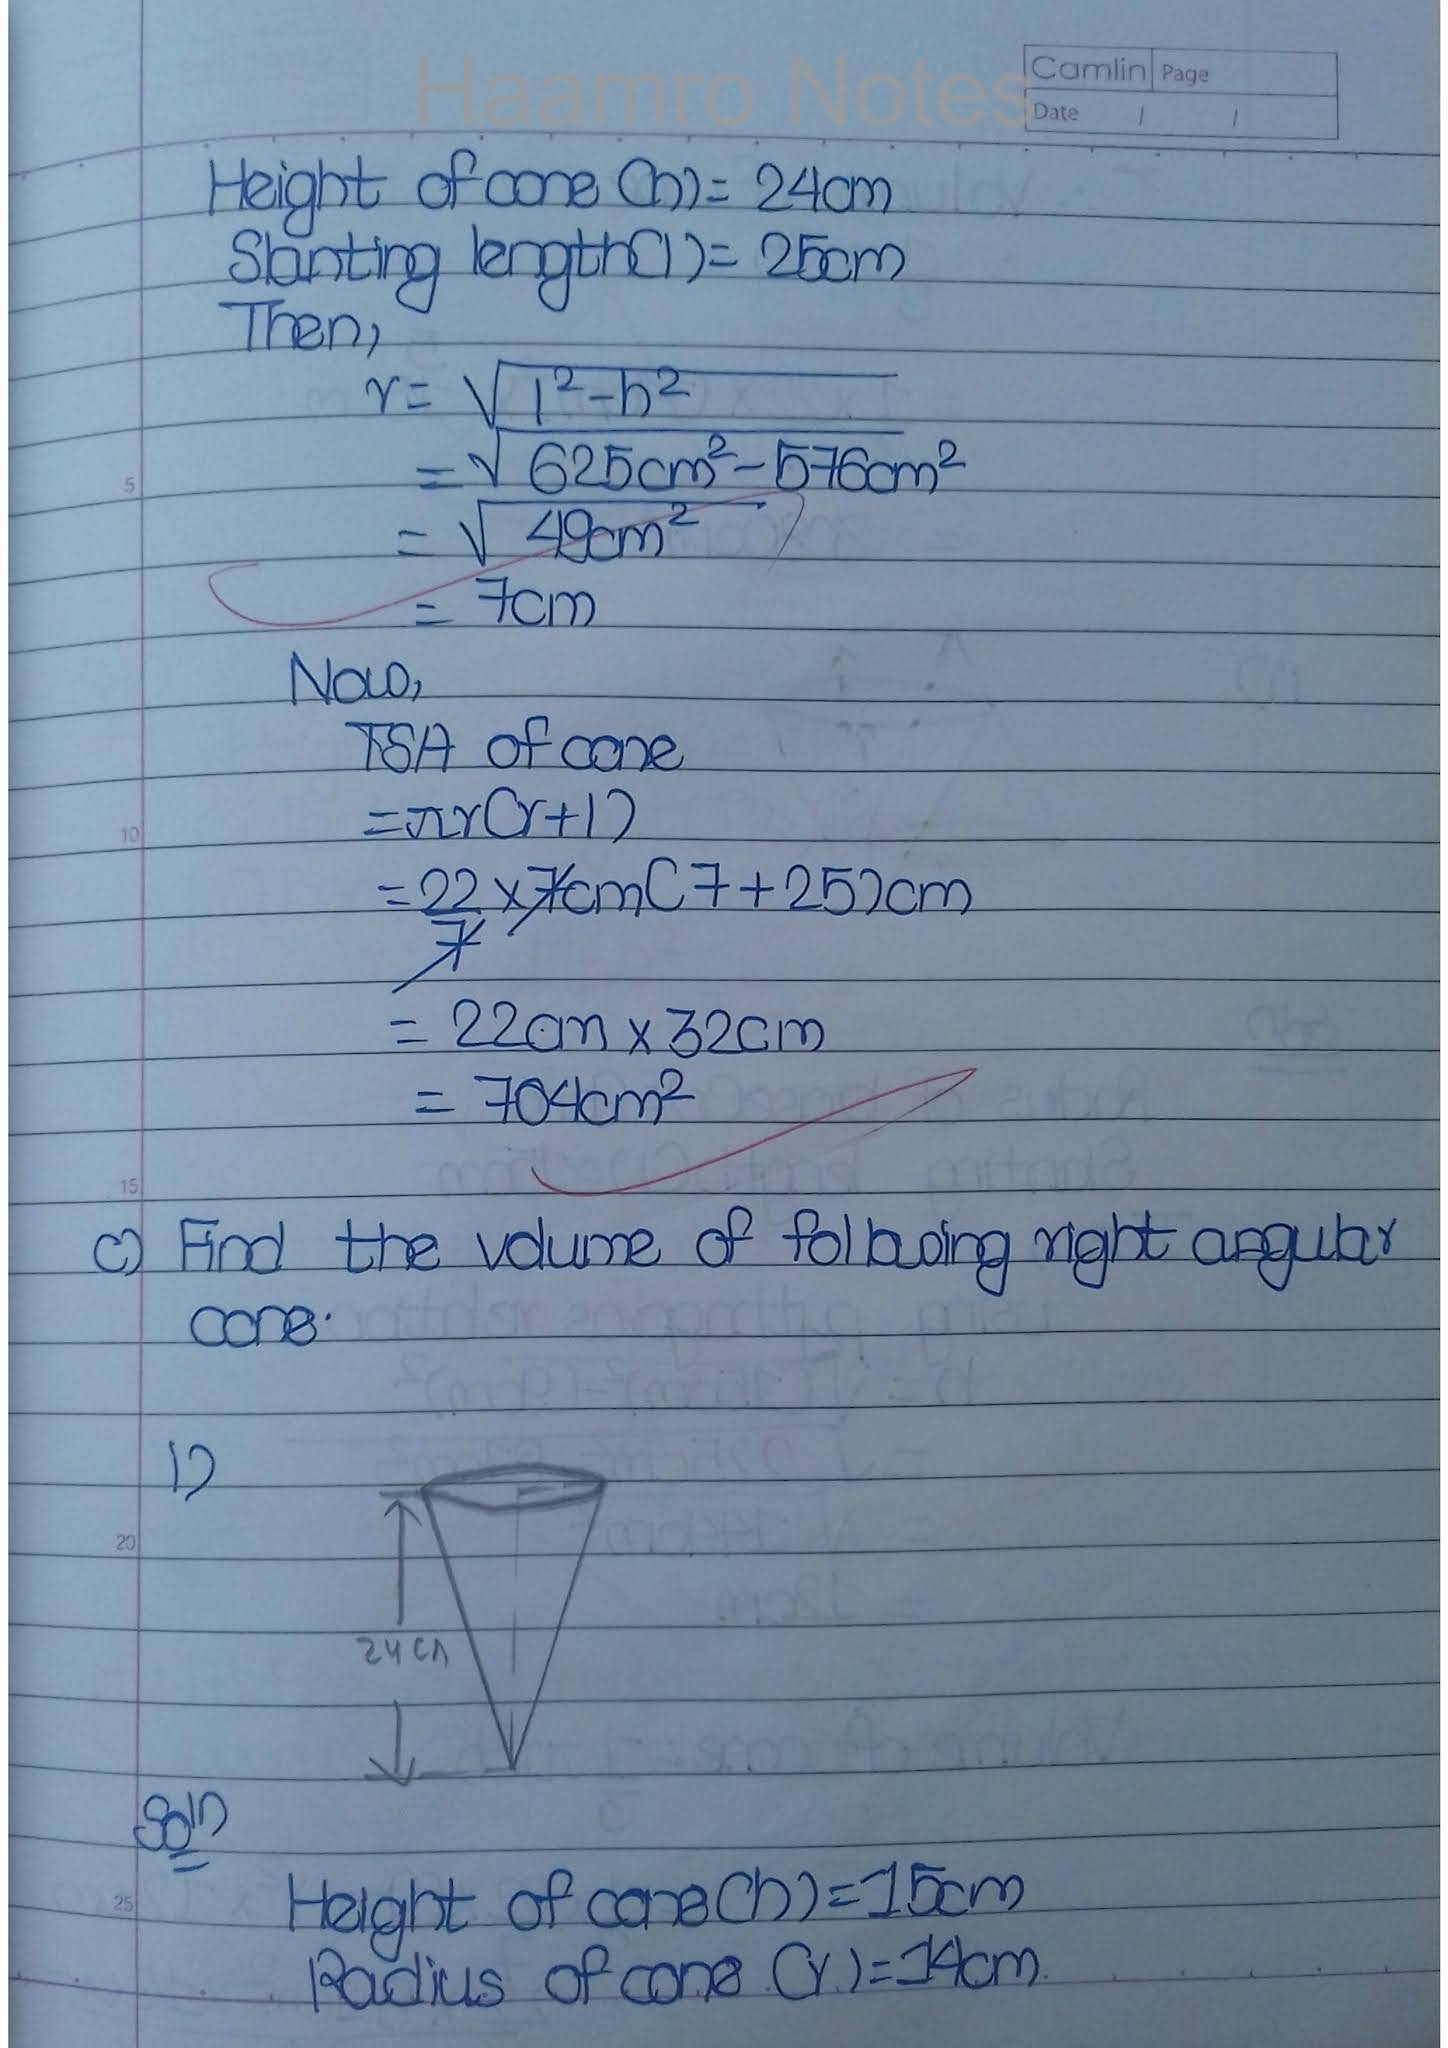 Haamro Notes
Camlin Page
Date / /
Height of cone (h) = 24cm
Slanting length(l) = 25cm
Then,
r = √l²-h²
= √625cm² - 576cm²
= √49cm²
= 7cm
Now,
TSA of cone
= πr(r+l)
= 22/7 × 7cm(7+25)cm
= 22cm × 32cm
= 704cm²
c) Find the volume of following right angular
cone.
i)
24cm
Soln
Height of cone(h) = 15cm
Radius of cone (r) = 14cm.
5
10
15
20
25